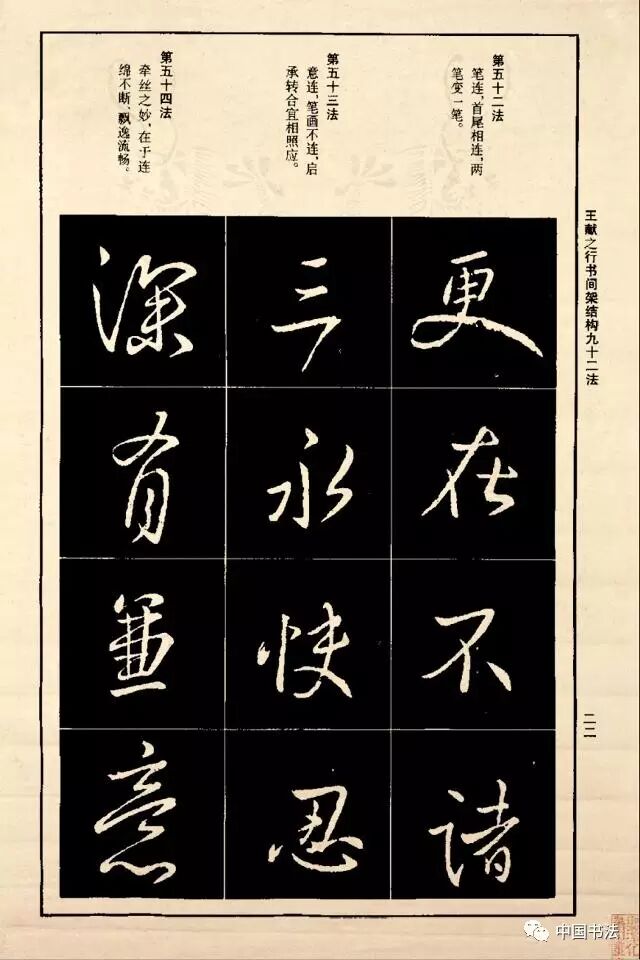 王献之行书间架结构九十二法
第五十二法
笔连,首尾相连,两
笔变一笔。
更
在
不
诸
第五十三法
意连,笔画不连,启
承转合宜相照应。
三
永
快
忍
第五十四法
牵丝之妙,在于连
绵不断、飘逸流畅。
深
有
兼
意
二二
中国书法